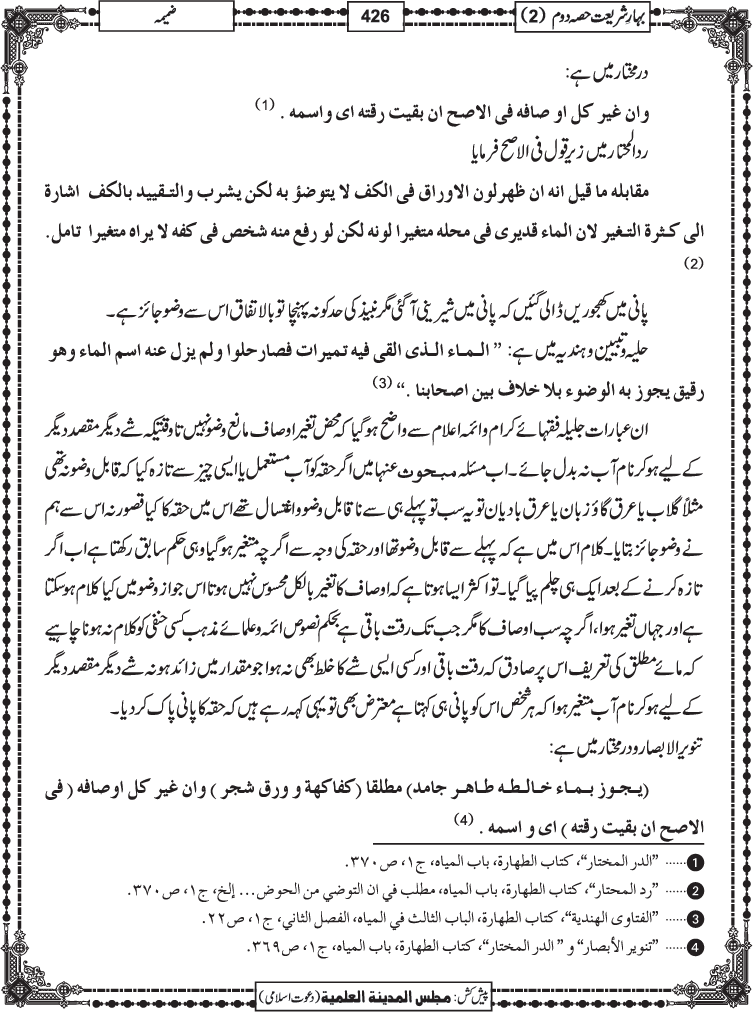 بہارِ شریعت حصہ دوم (2)
426
ضمیمہ
درمختار میں ہے:
وان غیر کل او صافه فی الاصح ان بقیت رقته ای واسمه . (1)
ردالمحتار میں زیر قول فی الاصح فرمایا
مقابله ما قیل انه ان ظهرلون الاوراق فی الکف لا یتوضؤ به لکن یشرب والتقیید بالکف اشارة
الی کثرة التغیر لان الماء قدیری فی محله متغیرا لونه لکن لو رفع منه شخص فی کفه لا یراه متغیرا تامل.
(2)
پانی میں کھجوریں ڈالی گئیں کہ پانی میں شیرینی آگئی مگر نبیذ کی حد کو نہ پہنچا تو بالاتفاق اس سے وضو جائز ہے۔
حلیہ وتبیین وہندیہ میں ہے: ” الماء الذی القی فیه تمیرات فصارحلوا ولم یزل عنه اسم الماء وهو
رقیق یجوز به الوضوء بلا خلاف بین اصحابنا .“ (3)
ان عبارات جلیلہ فقہائے کرام وائمہ اعلام سے واضح ہوگیا کہ محض تغیر اوصاف مانع وضو نہیں تاوقتیکہ شے دیگر مقصد دیگر
کے لیے ہو کر نام آب نہ بدل جائے۔ اب مسئلہ مبحوث عنہا میں اگر حقہ کو آب مستعمل یا ایسی چیز سے تازہ کیا کہ قابل وضو نہ تھی
مثلاً گلاب یا عرق گاؤ زبان یا عرق بادیان تو یہ سب تو پہلے ہی سے ناقابل وضو واغتسال تھے اس میں حقہ کا کیا قصور نہ اس سے ہم
نے وضو جائز بتایا۔ کلام اس میں ہے کہ پہلے سے قابل وضو تھا اور حقہ کی وجہ سے اگرچہ متغیر ہو گیا وہی حکم سابق رکھتا ہے اب اگر
تازہ کرنے کے بعد ایک ہی چلم پیا گیا۔ تو اکثر ایسا ہوتا ہے کہ اوصاف کا تغیر بالکل محسوس نہیں ہوتا اس جواز وضو میں کیا کلام ہوسکتا
ہے اور جہاں تغیر ہوا، اگرچہ سب اوصاف کا مگر جب تک رقت باقی ہے بحکم نصوص ائمہ وعلمائے مذہب کسی حنفی کو کلام نہ ہونا چاہیے
کہ مائے مطلق کی تعریف اس پر صادق کہ رقت باقی اور کسی ایسی شے کا خلط بھی نہ ہوا جو مقدار میں زائد ہو نہ شے دیگر مقصد دیگر
کے لیے ہو کر نام آب متغیر ہوا کہ ہر شخص اس کو پانی ہی کہتا ہے معترض بھی تو یہی کہہ رہے ہیں کہ حقہ کا پانی پاک کر دیا۔
تنویر الابصار ودرمختار میں ہے:
(یجوز بماء خالطه طاهر جامد) مطلقا (کفاکهة و ورق شجر ) وان غیر کل اوصافه ( فی
الاصح ان بقیت رقته ) ای و اسمه . (4)
1 ...... ”الدر المختار“، کتاب الطهارة، باب المیاه، ج۱، ص۳۷۰.
2 ...... ”رد المحتار“، کتاب الطهارة، باب المیاه، مطلب في ان التوضي من الحوض... إلخ، ج۱، ص۳۷۰.
3 ...... ”الفتاوی الهندیة“، کتاب الطهارة، الباب الثالث في المیاه، الفصل الثاني، ج۱، ص۲۲.
4 ...... ”تنویر الأبصار“ و ” الدر المختار“، کتاب الطهارة، باب المیاه، ج۱، ص۳۶۹.
پیش کش: مجلس المدینة العلمیة (دعوتِ اسلامی)